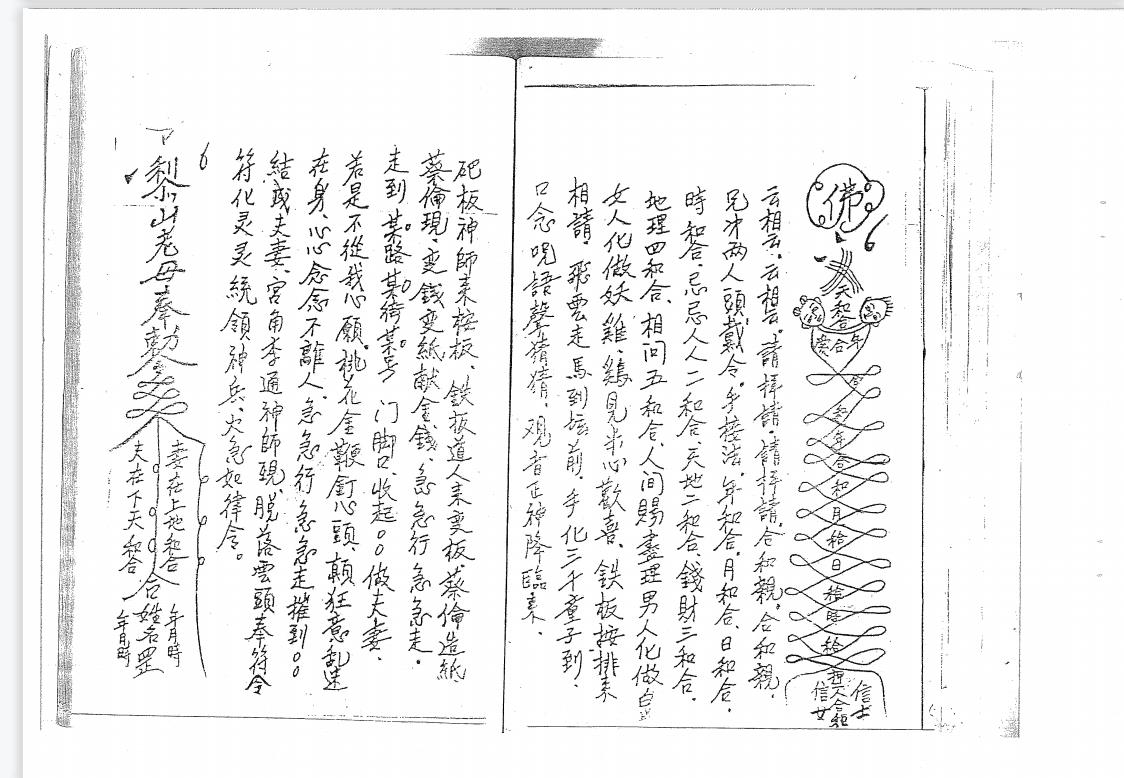 佛
天和合
合年
年合和月合日合時合
信士
信女
云相云、云相云。請拜請、請拜請、合和親、合和親、
兄弟两人頭戴令。手接法、年和合、月和合、日和合、
時和合、忌忌人人二和合、天地二和合、錢財三和合、
地理四和合、相问五和合、人间賜盡理男人化做白
女人化做妖雞、鷄見米心歡喜、鉄板按排來
相請、飛雲走馬到坛前、手化三千童子到、
口念呪語聲猜猜、观音正神降臨來、
砒板神師來桉板、鉄板道人来变板、蔡倫造紙
蔡倫現、变錢变紙献金錢、急急行急急走。
走到某路某街某号门脚口、收起○○做夫妻、
若是不從我心願、桃花金鞭釘心頭、顛狂意乱迷
在身、心心念念不離人、急急行急急走摧到○○
結成夫妻、宮角李通神師現、脱落雲頭奉符令
符化灵灵統領神兵、火急如律令。
下
黎山老母奉勅令
妻在上地和合
夫在下天和合
合姓名罡
年月時
年月時